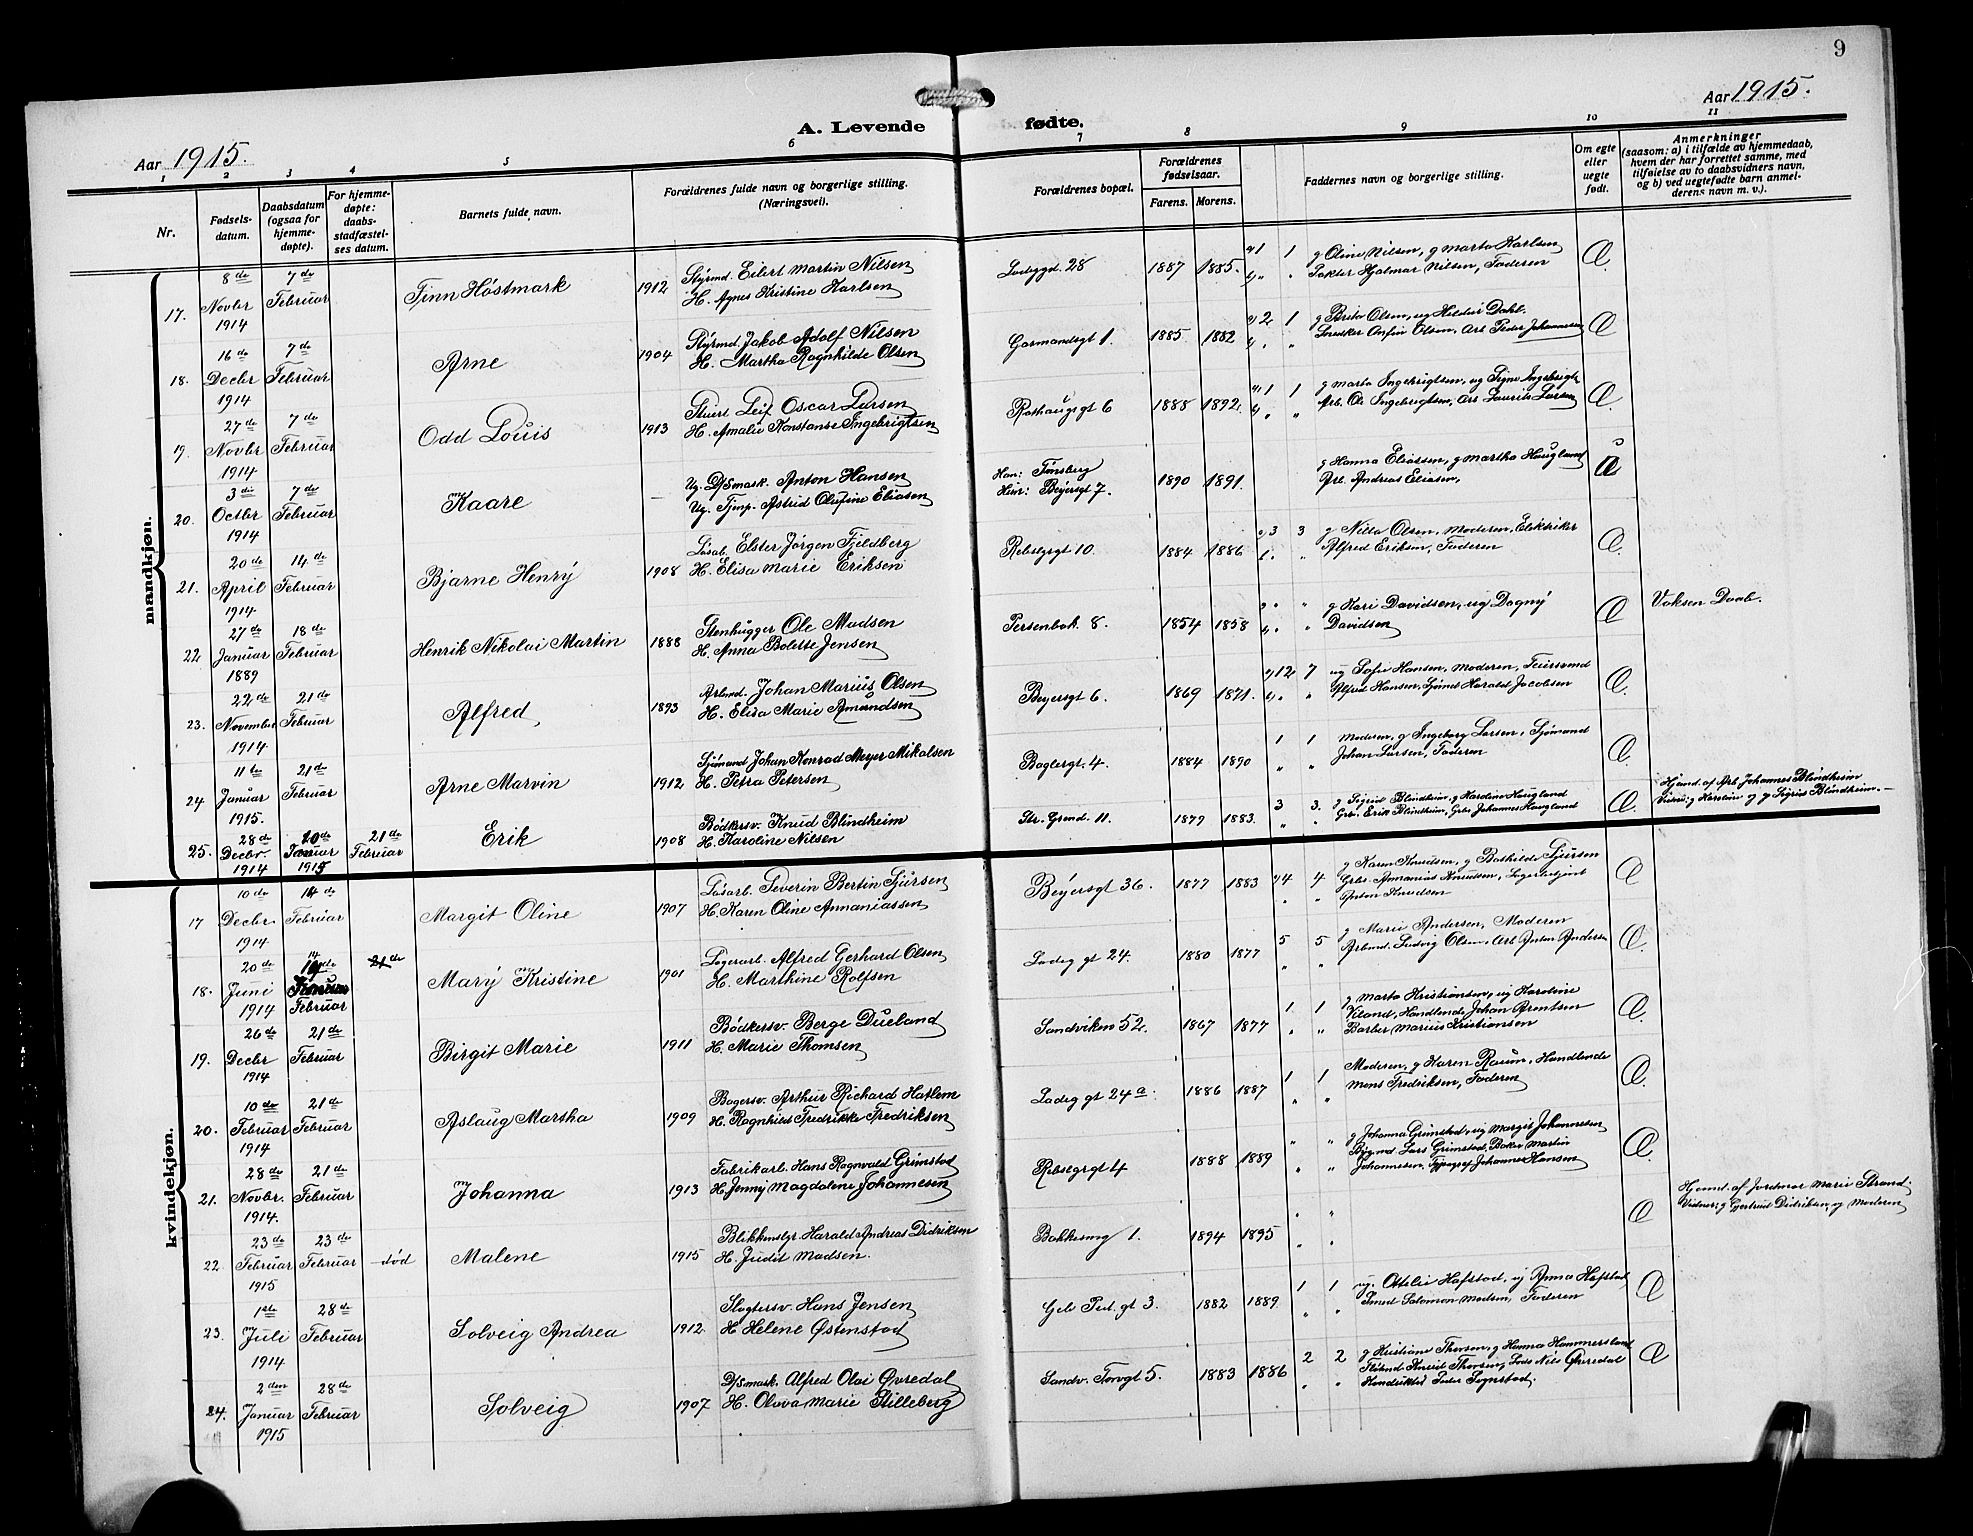 9
Aar 1915.
Aar 1915.
A. Levende fødte.
1 2 3 4 5 6 7 8 9 10 11
Nr.
Fødsels-
datum.
Daabsdatum
(ogsaa for
hjemme-
døpte).
For hjemme-
døpte:
daabs-
stadfæstel-
ses datum.
Barnets fulde navn.
Forældrenes fulde navn og borgerlige stilling.
(Næringsvei).
Forældrenes bopæl.
Forældrenes
fødselsaar.
Farens. Morens.
Faddernes navn og borgerlige stilling.
Om egte
eller
uegte
født.
Anmerkninger
(saasom: a) i tilfælde av hjemmedaab,
hvem der har forrettet samme, med
tilføielse av to daabsvidners navn,
og b) ved uegtefødte barn anmel-
derens navn m. v.).
mandkjøn.
17. 8de Novbr 1914 7de Februar Finn Høstmark 1912
Styrmd. Eilert Martin Nilsen
H. Agnes Kristine Karlsen
Ladeggd. 28 1887 1885. 1 1
g Oline Nilsen, g Marta Karlsen
Hjalmar Nilsen, Faderen
18. 16de Decbr 1914 7de Februar Arne 1904
Styrmd. Jakob Adolf Nilsen
H. Martha Ragnhilde Olsen
Garmandsgt 1. 1885 1882 2 1
g Brita Olsen, ug Hildur Dahl.
Snedker Anfin Olsen, Arb Peder Johannesen
19. 27de Novbr 1914 7de Februar Odd Louis 1913
Stuert Leif Oscar Larsen
H. Amalie Konstanse Ingebrigtsen
Rothaugsgt 6 1888 1892. 1 1
g Marta Ingebrigtsen, ug Signe Ingebrigts
Arb. Ole Ingebrigtsen, Arb Laurits Larsen
20. 3die Octbr 1914 7de Februar Kaare —
Ug. D/Smask. Anton Hansen
Ug. Tjenp. Astrid Olufine Eliasen
Han: Tønsberg
Hun: Beyersgt 7. 1890 1891.
g Hanna Eliassen, g Martha Haugland
Arb. Andreas Eliasen,
21. 20de April 1914 14de Februar Bjarne Henry 1908
Løsarb. Elster Jørgen Fjeldberg
H. Elisa Marie Eriksen
Rebslgrgt 10. 1884 1886 3 3
g Nilla Olsen, Moderen, Elektriker
Alfred Eriksen, Faderen
22 27de Januar 1889 18de Februar Henrik Nikolai Martin 1888
Stenhugger Ole Madsen
H. Anna Bolette Jensen
Persenbak. 8. 1854 1858
g Kari Davidsen, ug Dagny
Davidsen
Voksen Daab.
23. 22de November 1914 21de Februar Alfred 1893
Arbmd. Johan Marius Olsen
H. Elisa Marie Amundsen
Beyersgt 6. 1869 1871. 12 7
ug Sofie Hansen, Moderen,
Alfred Hansen, Sjømd Harald Jacobsen
24 11te Januar 1915. 21de Februar Arne Marvin 1912
Sjømand Johan Konrad Meyer Mikalsen
H. Petra Petersen
Baglergt. 4. 1884 1890 1 1
Moderen, g Ingeborg Larsen, Sjømand
Johan Larsen, Faderen
25. 28de Decbr. 1914 20de Januar 1915 21de Februar Erik 1908
Bødkersv. Knud Blindheim
H. Karoline Nilsen
Str. Grund. 11. 1879 1883. 3 3.
g Sigrid Blindheim, g Karoline Haugland
Grb. Erik Blindheim, Grb. Johannes Haugland
Hjemd. af Arb. Johannes Blindheim
Vidner; g Karoline og g Sigrid Blindheim.—
kvindekjøn.
17 10de Decbr. 1914 14de Februar Margit Oline 1907
Løsarb. Severin Bertin Sjursen
H. Karen Oline Annaniassen
Beyersgt 36. 1877 1883 4 4
g Karen Knudsen, g Bothilde Sjursen
Grb. Annanias Knudsen,
Anton Knudsen
18. 20de Juni 1914 14de Februar 21de Mary Kristine 1901
Lagerarb. Alfred Gerhard Olsen
H. Marthine Rolfsen
Ladeg gt 24. 1880 1877 5 5
g Marie Andersen, Moderen
Arbmd. Ludvig Olsen, Arb Anton Anders
19. 26de Decbr 1914 21de Februar Birgit Marie 1911
Bødkersv. Berge Dueland
H. Marie Thomsen
Sandviken 52. 1867 1877 1 1
g Marta Kristiansen, ug Karoline
Viland, Handlende Johan Arentsen
Barber Marius Kristiansen
20. 10de Februar 1914 21de Februar Aslaug Martha 1909
Bagersv. Arthur Richard Hatlem
H. Ragnhild Fredrikke Fredriksen
Ladeg gt 24a. 1886 1887 1 1
Moderen, g Karen Raum, Handlende
Mons Fredriksen, Faderen
21. 28de Novbr. 1914. 21de Februar Johanna 1913
Fabrikarb. Hans Ragnvald Grimstad
H. Jenny Magdalene Johannesen
Rebslgrgt 4 1888 1889
g Johanna Grimstad, ug Margit Johannesen
Bygmd Lars Grimstad, Baker Martin
Johannesen, Johannes Hansen
22. 23de Februar 1915 23de Februar død Malene 1915
Blikkenslgr. Harald Andreas Didriksen
H. Judit Madsen.
Bakkesmg 1. 1894 1895
Hjemd. af Jordmor Marie Strand.
Vidner; g Gjertrud Didriksen, og Moderen
23. 1ste Juli 1914 28de Februar Solveig Andrea 1912.
Slagtersv. Hans Jensen
H Helene Østenstad
Geb Ped. gt 3. 1882 1889. 1 1
ug. Ottelie Hafstad, ug Anna Hafstad
Smed Salomon Madsen, Faderen
24. 2den Januar 1915 28de Februar Solveig 1907
D/Smask. Alfred Olai Øvredal
H. Olava Marie Stilleberg
Sandv. Torvgt 5. 1883 1886 2 2
g Kristiane Thorsen, g Hanna Hammersland
Knud Thorsen, Lods Nils Øvredal
Konduktør Peder Sognstad.